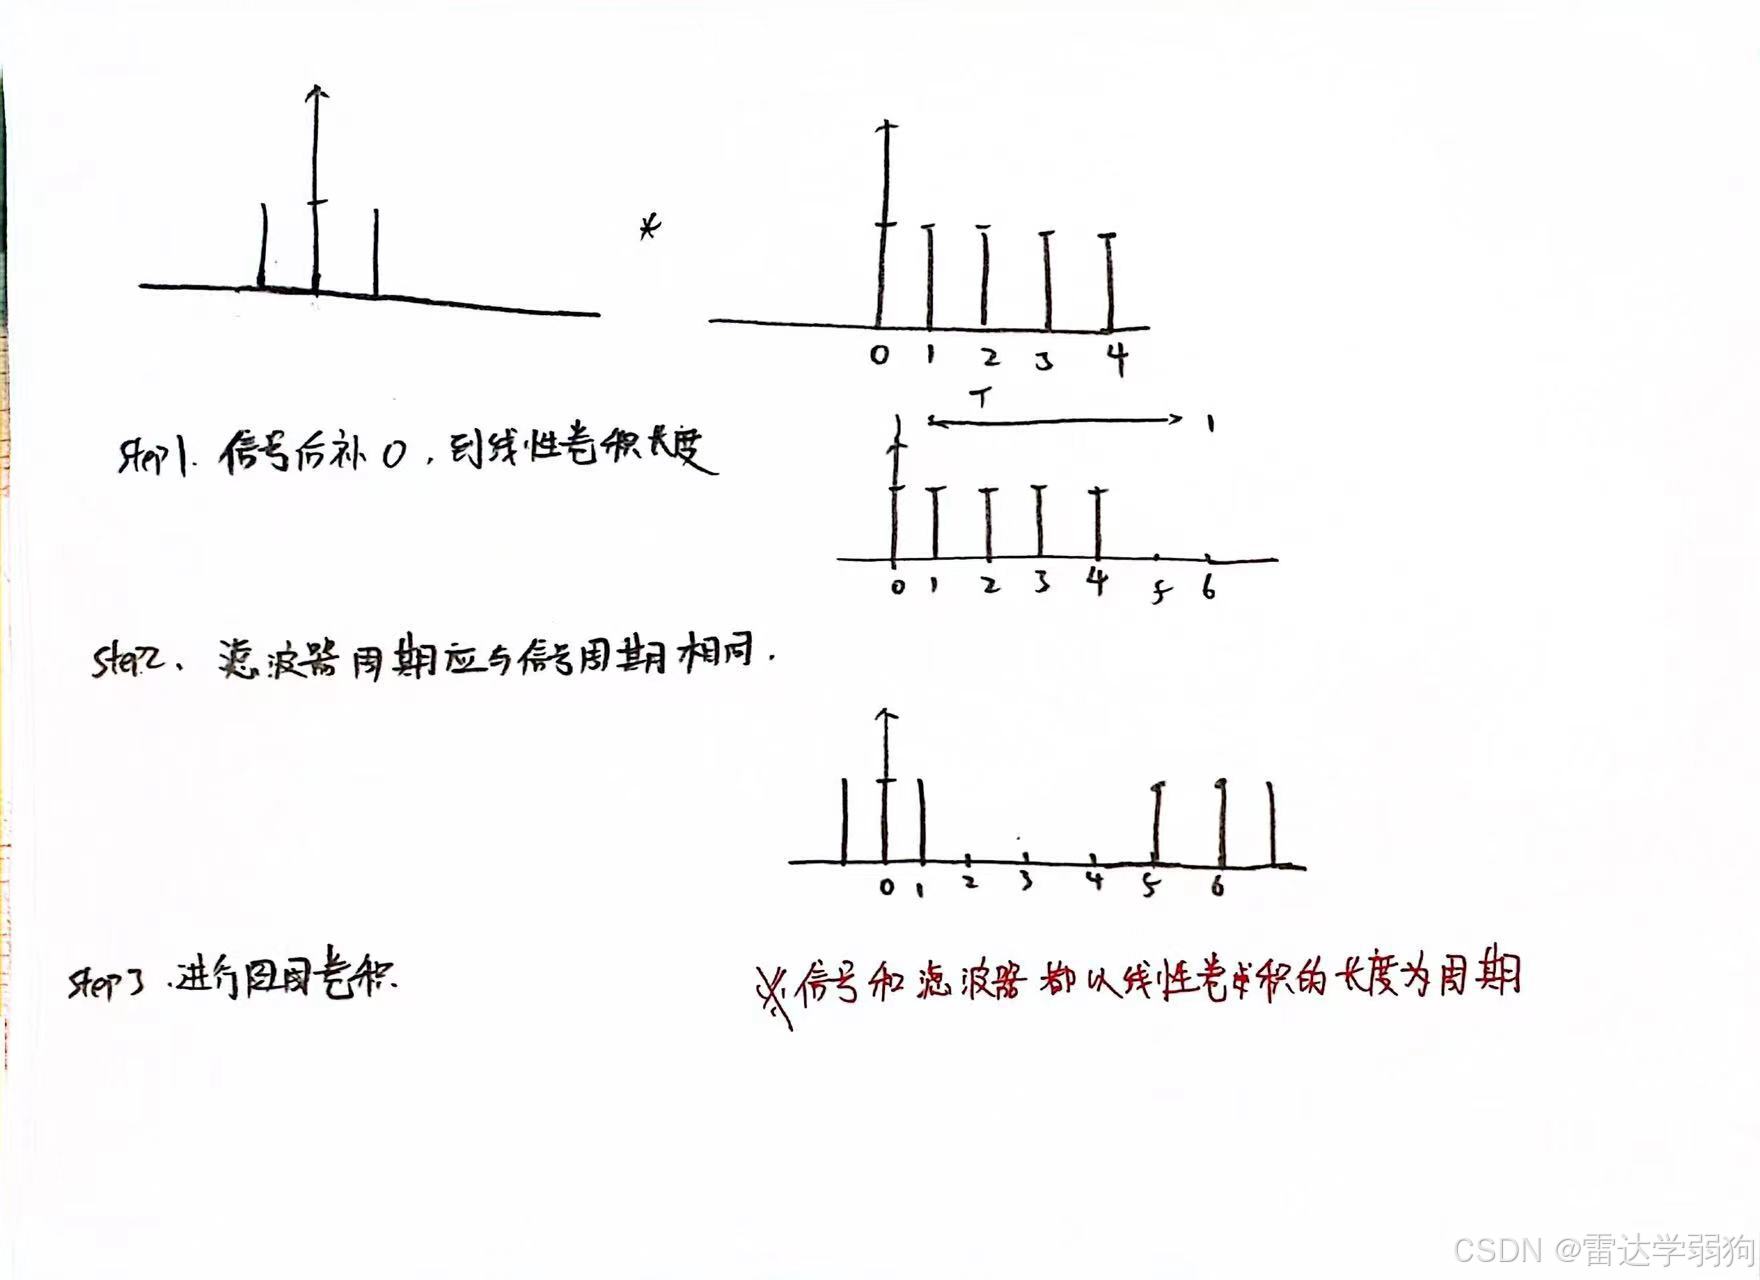 *
0 1 2 3 4
T
1
Step1. 信号后补0，到线性卷积长度
0 1 2 3 4 5 6
Step2、滤波器周期应与信号周期相同.
0 1 2 3 4 5 6
Step3.进行圆周卷积.
※信号和滤波器都以线性卷积的长度为周期
CSDN @雷达学弱狗